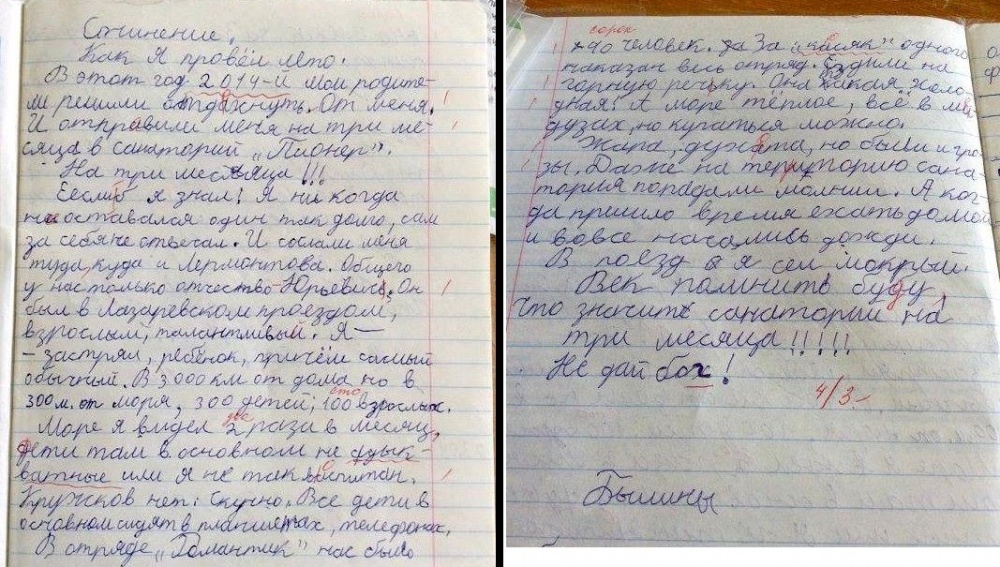 Сочинение.
Как Я провёл лето.
В этот год 2014-й мои родите-
ли решили отдахнуть. От меня.
И отправили меня на три ме-
сяца в санаторий „Пионер".
На три месяца!!!
Еслиб я знал! Я ни когда
не оставался один так долго, сам
за себя не отвечал. И сослали меня
туда, куда и Лермонтова. Общего
у нас только отчество - Юрьевич. Он
был в Лазаревском проездом,
взрослый, талантливый. Я —
- застрял, ребёнок, причём самый
обычный. В 3000 км от дома но в
сто
300 м. от моря, 300 детей, 100 взрослых.
два
Море я видел 2 раза в месяц,
дети там в основном не
ватные или я не так воспитан.
Кружков нет. Скучно. Все дети в
основном сидят в планшетах, телефонах.
В отряде „Романтик" нас было
сорок
40 человек. За „касяк" одного
наказан весь отряд. Ездили на
горную речьку. Она такая холо-
дная! А море тёплое, всё в ме
дузах, но купаться можно.
Жара, духата, но были и гро-
зы. Даже на территорию сана-
тория попадали молнии. А ког-
да пришло время ехать домой
и вовсе начались дожди.
В поезд я сел мокрый.
Век помнить буду,
что значить санаторий на
три месяца!!!!!
Не дай бог!
4/3-
Былины